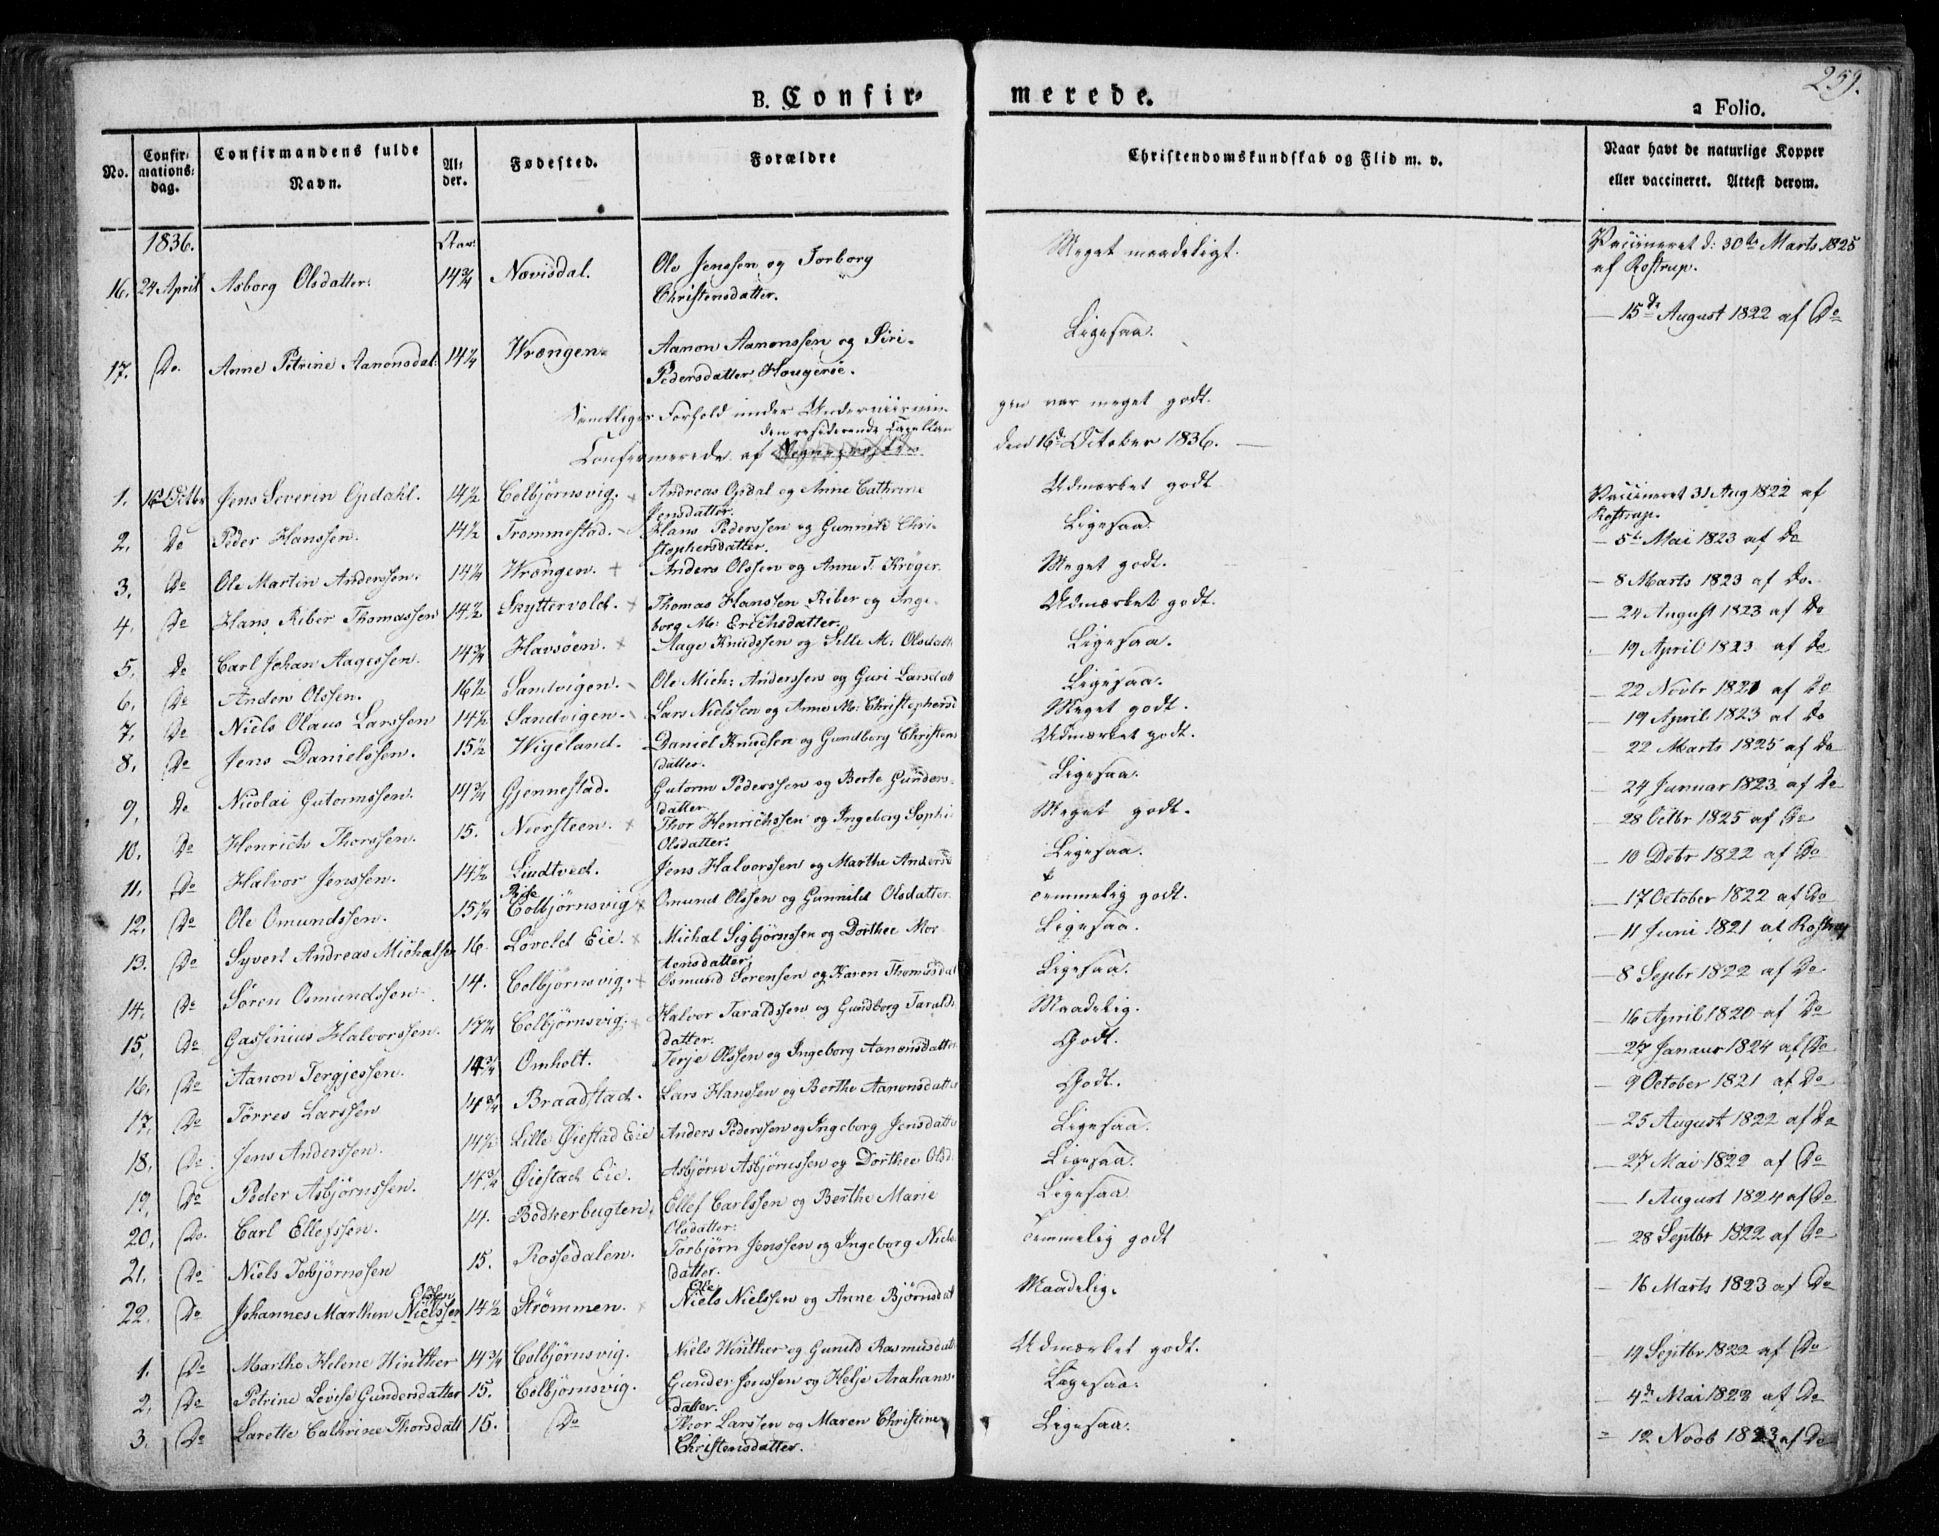 259.
B. Confir- merede. a Folio.
No. Confirmations-dag. Confirmandens fulde Navn. Alder. Fødested. Forældre Christendomskundskab og Flid m. v. Naar havt de naturlige Kopper eller vaccineret. Attest derom.
1836. Aar:
16. 24 April Asborg Olsdatter: 14¾ Nævisdal. Ole Jenssen og Torborg Christensdatter. Meget maadeligt. Vaccineret d: 30te Marts 1825 af Rostrup.
17. Do. Anne Petrine Aanonsdat: 14¼ Wrængen. Aanon Aanonssen og Siri Pedersdatter Hougerøe. Ligesaa. — 15de August 1822 af Do
Samtliges Forhold under Underviisningen var meget godt.
Confirmerede af den residerende Capellan den 16de October 1836. —
1. 16 Octbr Jens Severin Opdahl. 14½ Colbjørnsvig. Andreas Opdal og Anne Cathrine Jensdatter. Udmærket godt Vaccineret 31 Aug 1822 af Rostrup.
2. Do Peder Hanssen. 14½ Trommestad. Hans Pederssen og Gunnild Christophersdatter. Ligesaa. — 5te Mai 1823 af Do
3. Do Ole Martin Anderssen. 14¼ Wrængen. + Anders Olssen og Anne T. Krøger. Meget godt. — 8 Marts 1823 af Do.
4. Do Hans Riber Thomassen 14½ Skyttervold. + Thomas Hanssen Riber og Ingeborg M: Erichsdatter. Udmærket godt. — 24 August 1823 af Do
5. Do Carl Johan Aagessen. 14¾ Havsöen. + Aage Knudssen og Sille M. Olsdatt. Ligesaa. — 19 April 1823 af Do
6. Do Anders Olssen. 16½ Sandvigen. Ole Mich: Anderssen og Guri Larsdatt Ligesaa. — 22 Novbr 1821 af Do
7. Do Niels Olaus Larssen 14½ Sandvigen. Lars Nielssen og Anne M: Christophersd Meget godt. — 19 April 1823 af Do
8. Do Jens Danielssen. 15½ Wigeland. Daniel Knudsen og Gundborg Christensdatter. Udmærket godt. — 22 Marts 1825 af Do
9. Do Nicolai Gutormssen. 14¾ Gjennestad. Gutorm Pederssen og Berte Gundersdatter Ligesaa. — 24 Januar 1823 af Do
10. Do Henrich Thorssen. 15. Neersteen. + Thor Henrichssen og Ingeborg Sophie Olsdatter. Meget godt. — 28 Octbr 1825 af Do
11. Do Halvor Jenssen. 14½ Lindtved. Jens Halvorssen og Marthe Andersd Ligesaa. — 10 Debr 1822 af Do
12. Do Ole Omundssen. 15¼ Colbjørnsvig + Omund Olssen og Gunnild Olsdatter. Temmelig godt. — 17 October 1822 af Do
13. Do Syvert Andreas Michalsen 16. Løvold Eie. + Michal Sigbjørnssen og Dorthee Mortensdatter. Ligesaa. — 11 Juni 1821 af Rostrup
14. Do Søren Osmundssen 14. Colbjørnsvig. + Osmund Sørensen og Karen Thomasdat Ligesaa. — 8 Sepbr 1822 af Do
15. Do Gassinius Halvorssen. 17¼ Colbjørnsvig. + Halvor Taraldssen og Gundborg Taraldsdatter. Maadelig. — 16 April 1820 af Do
16. Do Aanon Tergjessen. 14¾ Omholt. Terje Olssen og Ingeborg Aanonsdatter Godt. — 27 Janaur 1824 af Do
17. Do Tørres Larssen 14¾ Braadstad. Lars Hanssen og Berthe Aanonsdatter Godt. — 9 October 1821 af Do
18. Do Jens Anderssen. 14½ Lille Øiestad Eie Anders Pederssen og Ingeborg Jensdatter Ligesaa. — 25 August 1822 af Do
19. Do Peder Asbjørnssen. 14¾ Øiestad Eie. Asbjørn Asbjørnssen og Dorthee Olsd. Ligesaa. — 27 Mai 1822 af Do
20. Do. Carl Ellefssen. 14. Bødkerbugten. Ellef Carlssen og Berthe Marie Olsdatter: Ligesaa — 1 August 1824 af Do
21. Do Niels Torbjørnssen 15. Rossedalen. Torbjørn Jenssen og Ingeborg Nielsdatter. Temmelig godt — 28 Septbr 1822 af Do
22. Do Johannes Marthin Nielssen Olsen 14½ Strømmen. Ole Niels Nielssen og Anne Bjørnsdat Maadelig. — 16 Marts 1823 af Do
1. Do Marthe Helene Winther 14¾ Colbjørnsvig. Niels Winther og Gunild Rasmusdatt Udmærket godt. — 14 Septbr 1822 af Do
2. Do Petrine Levise Gundersdatter 15. Colbjørnsvig. Gunder Jenssen og Helje Arahamsdatter. Ligesaa. — 4de Mai 1823 af Do
3. Do Larette Cathrine Thorsdatt 15. Do Thor Larssen og Maren Christine Christensdatter. Ligesaa. — 12 Novb 1823 af Do